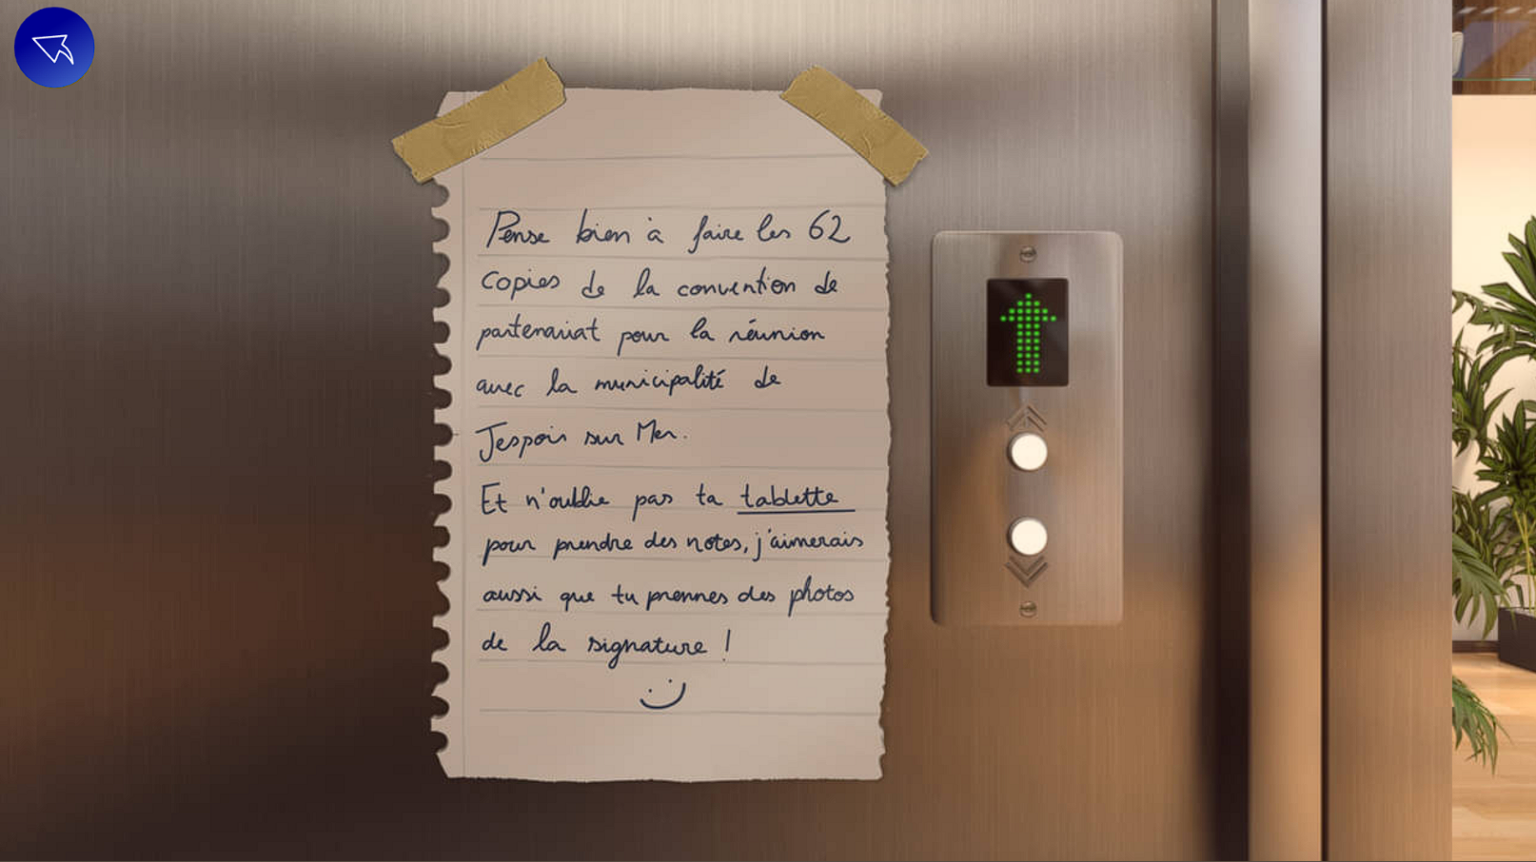 Pense bien à faire les 62
copies de la convention de
partenariat pour la réunion
avec la municipalité de
Jespoir sur Mer.
Et n'oublie pas ta tablette
pour prendre des notes, j'aimerais
aussi que tu prennes des photos
de la signature !